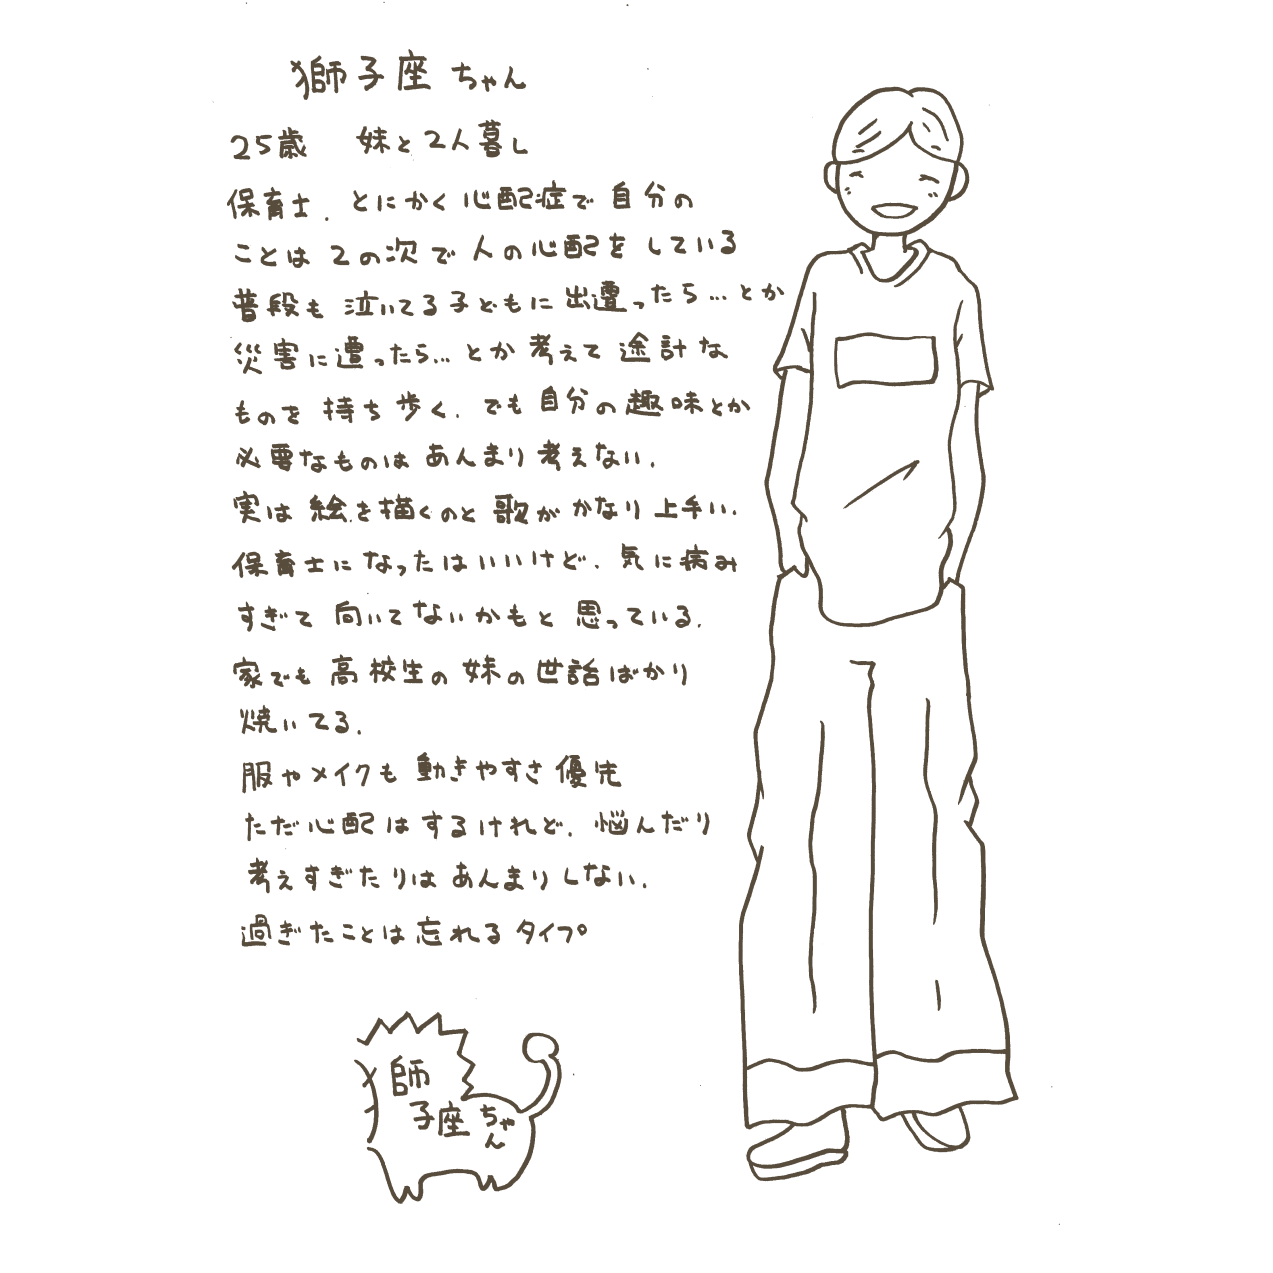 獅子座ちゃん
25歳 妹と2人暮し
保育士.とにかく心配症で自分の
ことは2の次で人の心配をしている
普段も泣いてる子どもに出遭ったら…とか
災害に遭ったら…とか考えて途計な
ものを持ち歩く.でも自分の趣味とか
必要なものはあんまり考えない.
実は絵を描くのと歌がかなり上手い.
保育士になったはいいけど.気に病み
すぎて向いてないかもと思っている.
家でも高校生の妹の世話ばかり
焼いてる.
服やメイクも動きやすさ優先
ただ心配はするけれど.悩んだり
考えすぎたりはあんまりしない.
過ぎたことは忘れるタイプ
獅
子座ちゃん